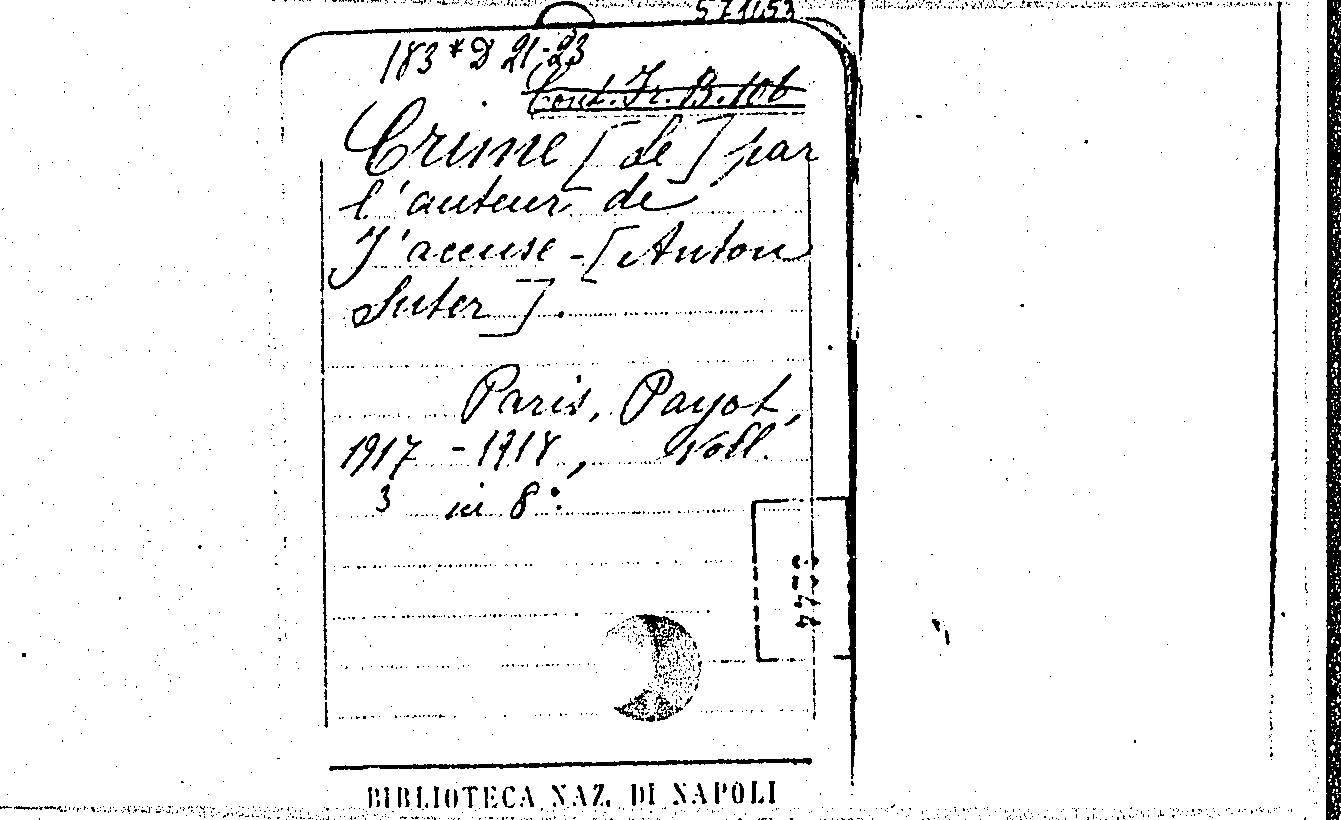 571653
183*D 21-23
Cont. Fr. B. 106
Crime [Le] par
l'auteur de
J'accuse - [Anton
Suter].
Paris, Payot,
1917 - 1918, Voll.
3 in 8°.
BIBLIOTECA NAZ. DI NAPOLI